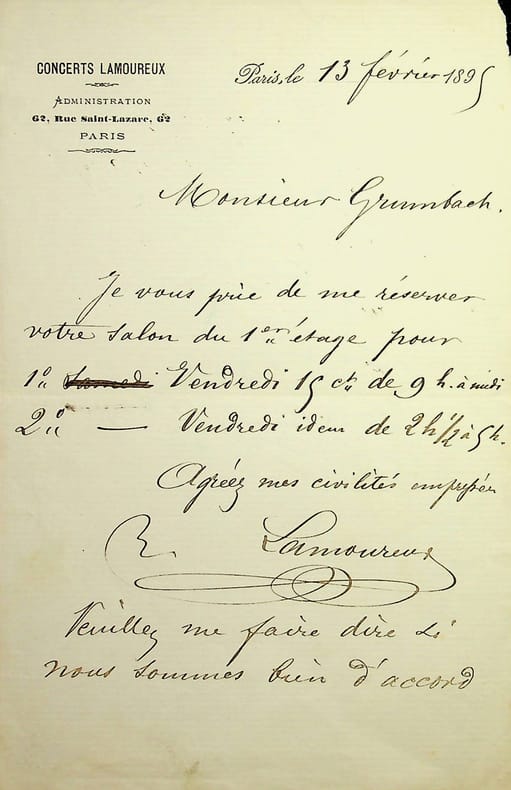 CONCERTS LAMOUREUX
ADMINISTRATION
62, Rue Saint-Lazare, 62
PARIS
Paris, le 13 février 1895
Monsieur Grumbach.
Je vous prie de me réserver
votre salon du 1er étage pour
1o. Samedi Vendredi 15 ct. de 9 h. à midi
2o. — Vendredi idem de 2h 1/2 à 5h.
Agréez mes civilités empressées
Lamoureux
Veuillez me faire dire si
nous sommes bien d'accord